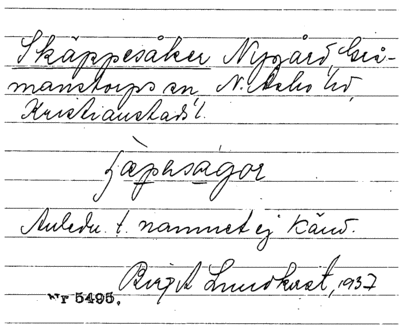 Skäppesåker Nygård, Grå-
manstorps sn, N. Åsbo hd,
Kristianstads l.
Anledn. t. namnet ej känd.
Birgit Lundkvist, 1937
Nr 5495.